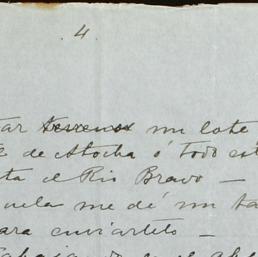 4
tar terrenos un lote
de Atocha ó todo est
ta el Rio Bravo —
uela me dé un ta
ara enviártelo —